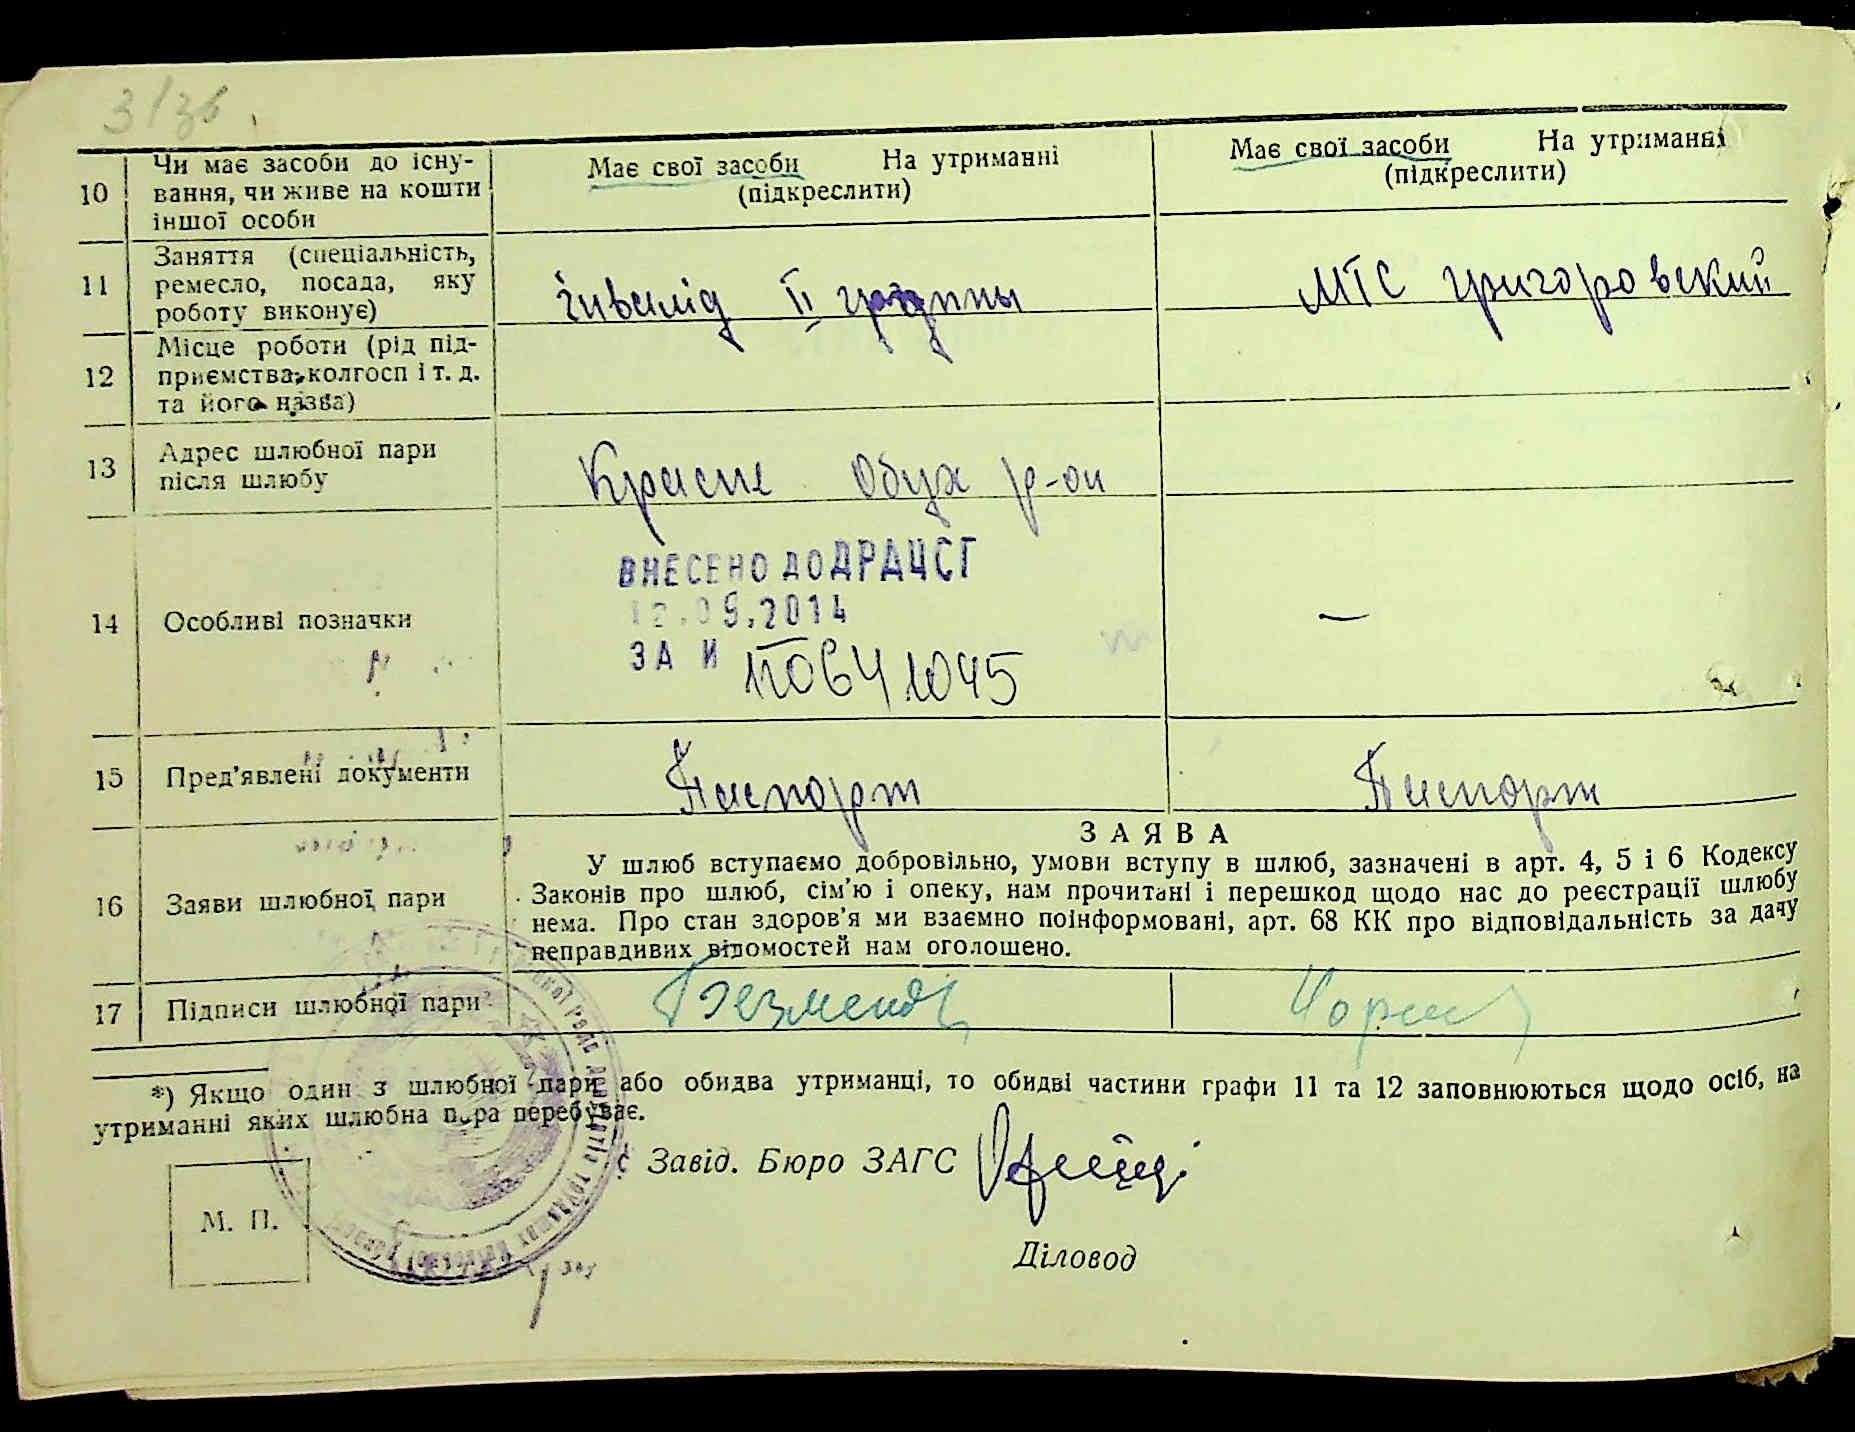 3/36
10 Чи має засоби до існу-
вання, чи живе на кошти
іншої особи
Має свої засоби На утриманні
(підкреслити)
Має свої засоби На утриманні
(підкреслити)
11 Заняття (спеціальність,
ремесло, посада, яку
роботу виконує)
інвалід ІІ группы
МТС григоровский
12 Місце роботи (рід під-
приємства, колгосп і т. д.
та його назва)
13 Адрес шлюбної пари
після шлюбу
Красне Обух р-он
14 Особливі позначки
ВНЕСЕНО ДО ДРАЦСГ
12.09.2014
ЗА И 11064 1045
—
15 Пред'явлені документи
Паспорт
Паспорт
16 Заяви шлюбної пари
ЗАЯВА
У шлюб вступаємо добровільно, умови вступу в шлюб, зазначені в арт. 4, 5 і 6 Кодексу
Законів про шлюб, сім'ю і опеку, нам прочитані і перешкод щодо нас до реєстрації шлюбу
нема. Про стан здоров'я ми взаємно поінформовані, арт. 68 КК про відповідальність за дачу
неправдивих відомостей нам оголошено.
17 Підписи шлюбної пари
*) Якщо один з шлюбної пари або обидва утриманці, то обидві частини графи 11 та 12 заповнюються щодо осіб, на
утриманні яких шлюбна пара перебуває.
Завід. Бюро ЗАГС
М. П.
Діловод